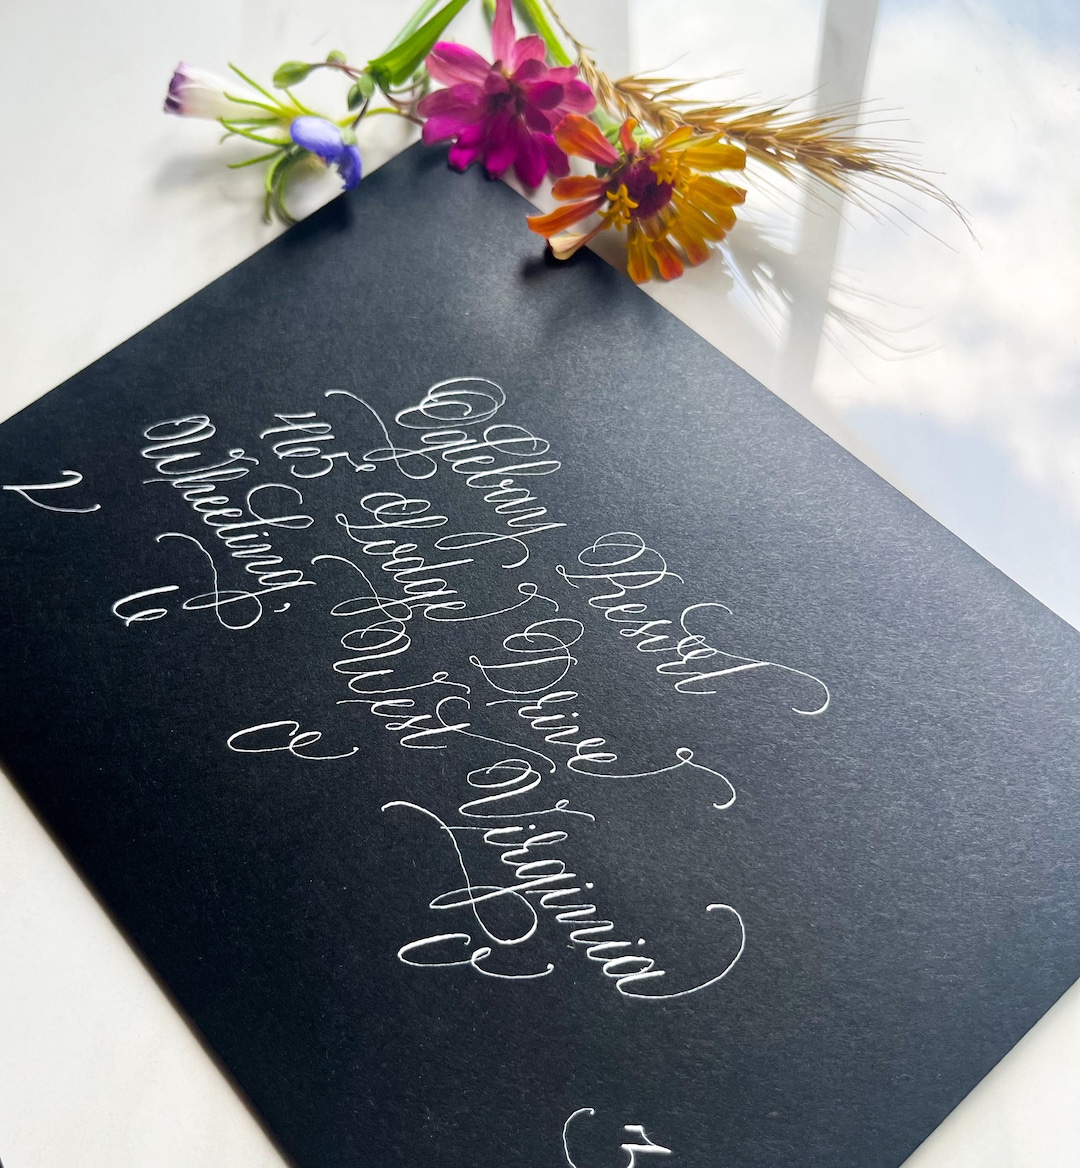 Oglebay Resort
465 Lodge Drive
Wheeling, West Virginia
2 6 0 0 3